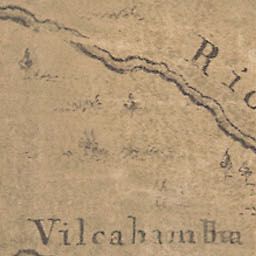 Rio
Vilcabamba